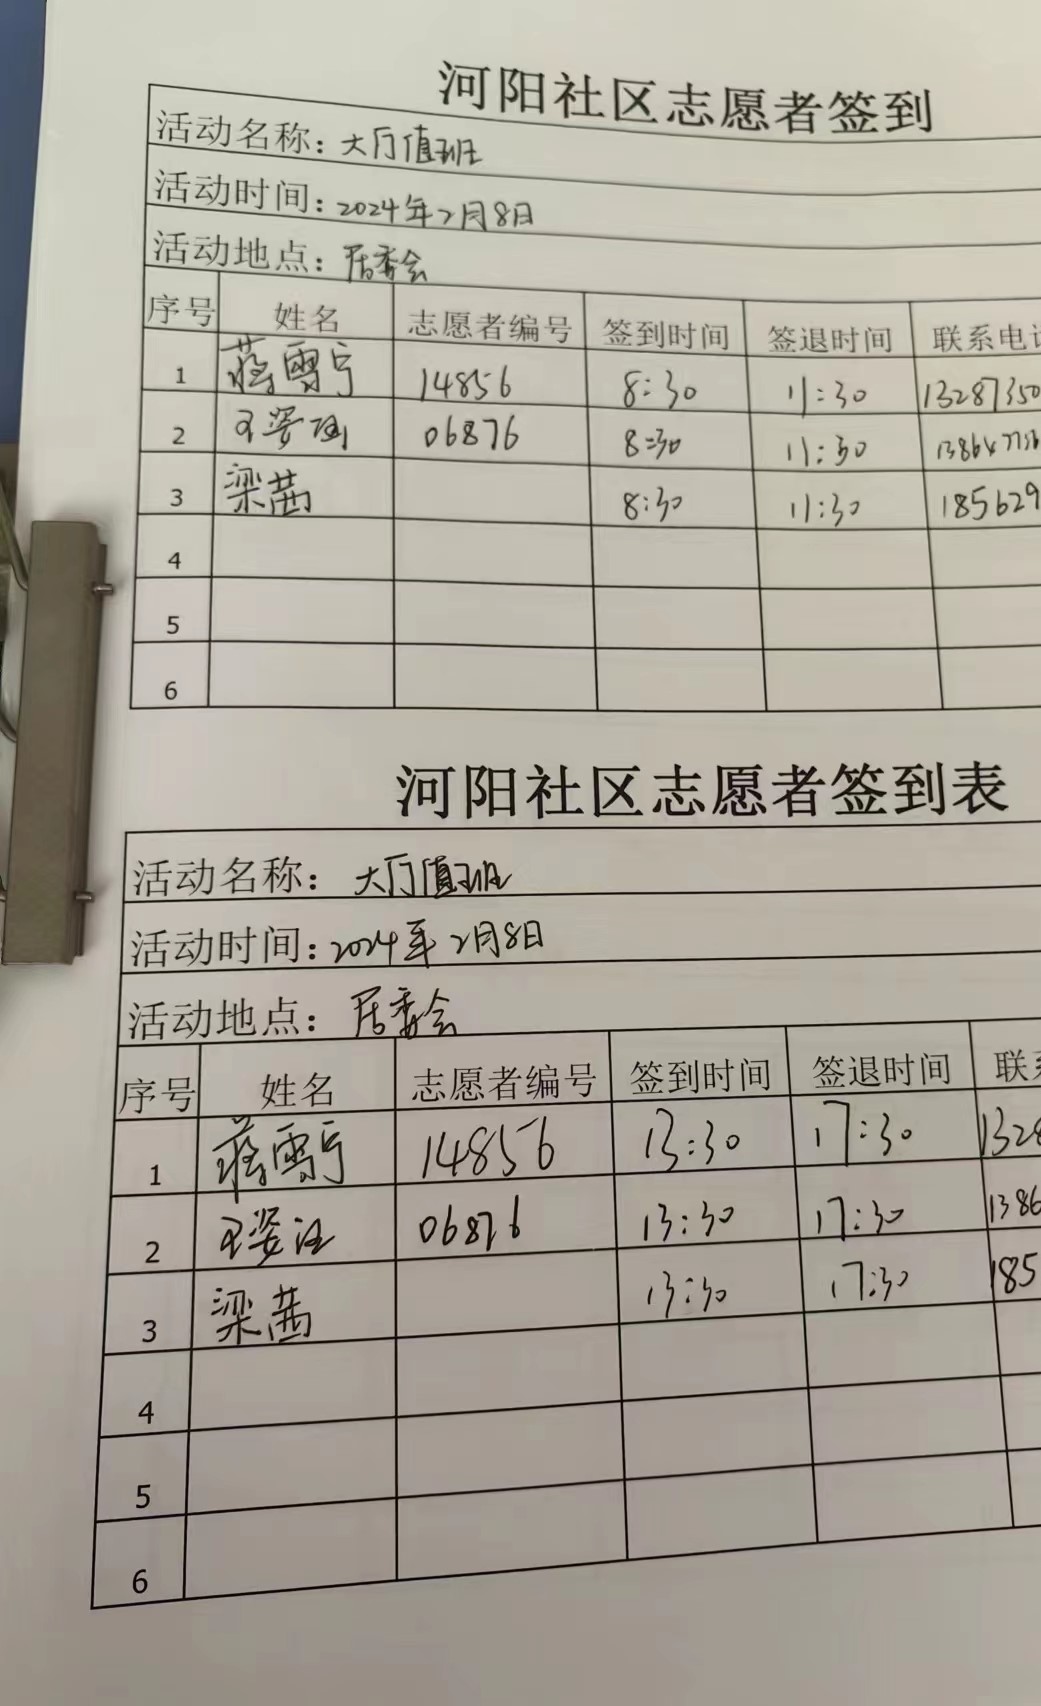 河阳社区志愿者签到
活动名称：大厅值班
活动时间：2024年2月8日
活动地点：居委会
序号 姓名 志愿者编号 签到时间 签退时间 联系电
1 蒋雪宁 14856 8:30 11:30 13287350
2 06876 8:30 11:30
3 梁茜 8:30 11:30 185629
4
5
6
河阳社区志愿者签到表
活动名称：大厅值班
活动时间：2024年2月8日
活动地点：居委会
序号 姓名 志愿者编号 签到时间 签退时间 联
1 蒋雪宁 14856 13:30 17:30 132
2 06876 13:30 17:30 1386
3 梁茜 13:30 17:30 185
4
5
6